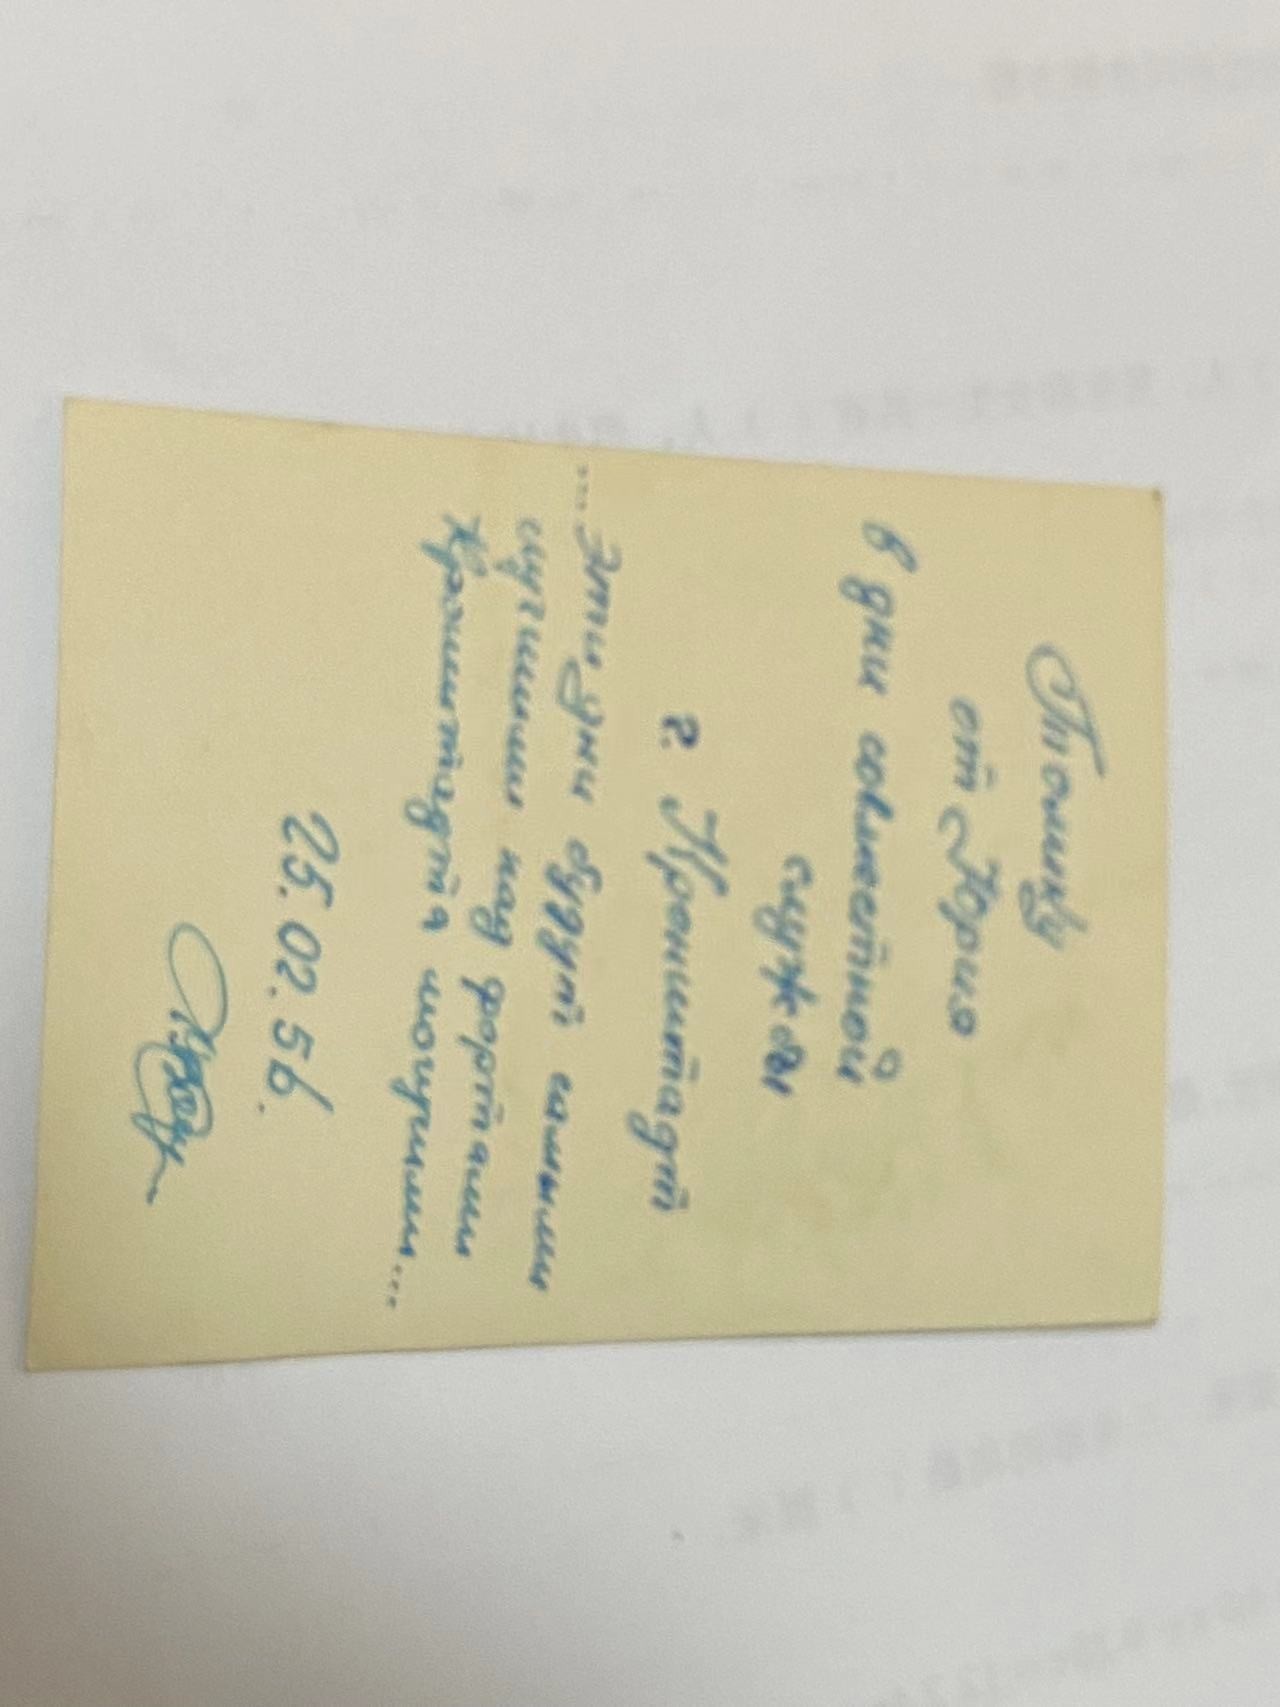 Толику
от Юрия
в дни совместной
службы
г. Кронштадт
...Эти дни будут самыми
лучшими над фортами
Кронштадта могучими...
25.02.56.